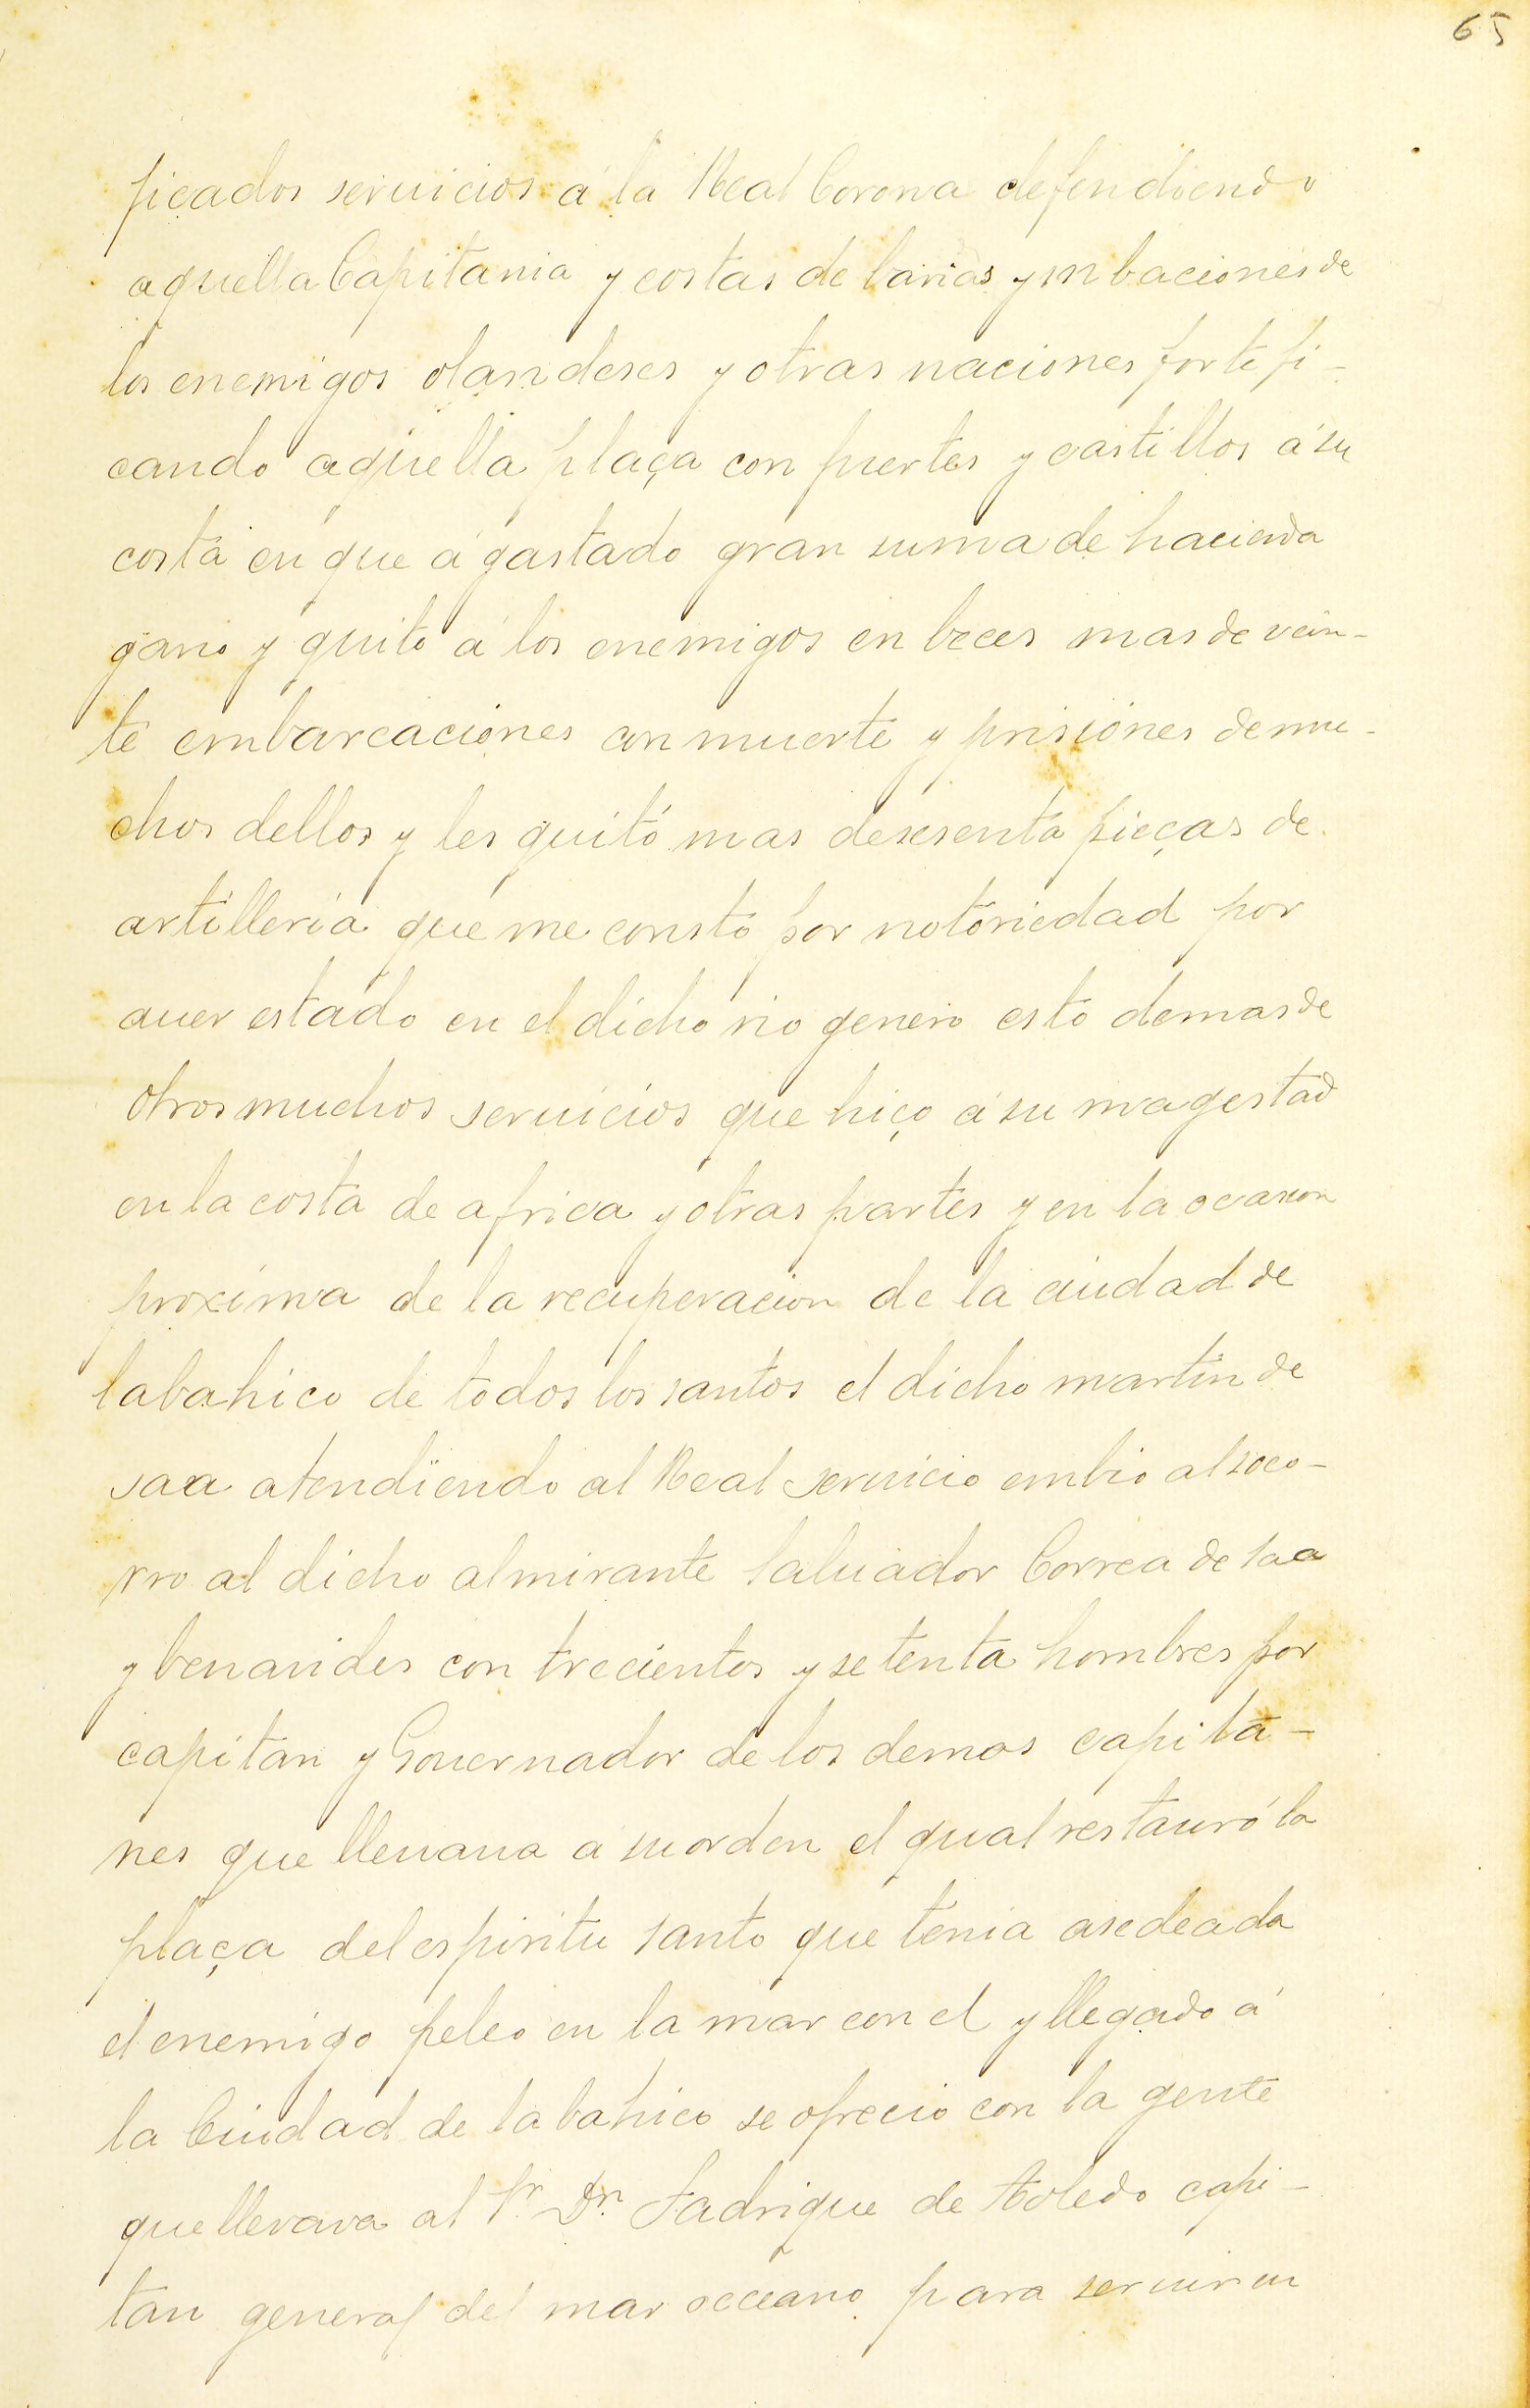 65
ficados seruicios á la Real Corona defendiendo
aquella Capitania y costas de barias ynbaciones de
los enemigos olandeses y otras naciones fortefi-
cando aquella plaça con fuertes y castillos á su
costa en que á gastado gran suma de hacienda
gano y quito á los enemigos en beces mas de vein-
te embarcaciones con muerte y prisiones de mu-
chos dellos y les quitó mas de sesenta pieças de
artilleria que me consto por notoriedad por
auer estado en el dicho rio genero esto demas de
otros muchos seruicios que hiço á su magestad
en la costa de africa y otras partes y en la ocasion
proxima de la recuperacion de la ciudad de
labahico de todos los santos el dicho martin de
saa atendiendo al Real seruicio embio al soco-
rro al dicho almirante saluador Correa de saa
y benauides con trecientos y setenta hombres por
capitan y Gouernador de los demas capita-
nes que lleuaua a su orden el qual restauró la
plaça del espiritu santo que tenia asedeada
el enemigo peleo en la mar con el y llegado á
la Ciudad de labahico se ofrecio con la gente
que llevava al Sr. Dn. Fadrique de toledo capi-
tan general del mar occeano para seruir en